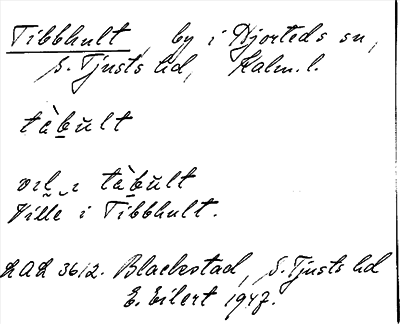 Tibbhult, by i Hjorteds sn,
S. Tjusts hd, Kalm. l.
tàbult
vil i tàbult
Ville i Tibbhult.
KAK 36/2. Blackstad, S. Tjusts hd
E. Eilert 1947.